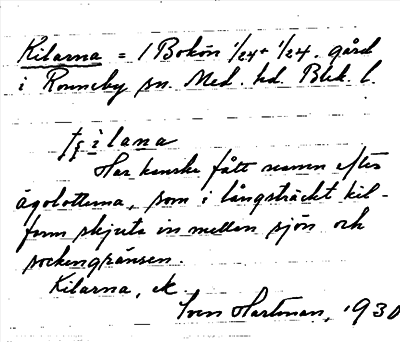 Kilarna = 1 Bokön 1/24 + 1/24. gård
i Ronneby sn. Med. hd. Blek. l.
ɩlana
Har kanske fått namn efter
ägolotterna, som i långsträckt kil-
form skjuta in mellan sjön och
sockengränsen.
Kilarna, ek.
Sven Hartman, 1930